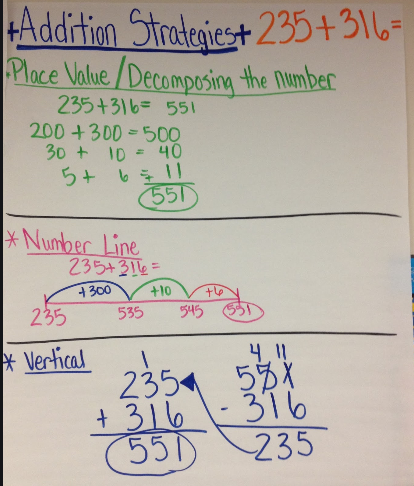 +Addition Strategies+ 235+316=
Place Value/Decomposing the number
235+316= 551
200+300=500
30 + 10 = 40
5+ 6 = + 11
551
* Number Line
235+316=
+300 +10 +6
235 535 545 551
* Vertical
1
235
+ 316
551
4 11
551
- 316
235